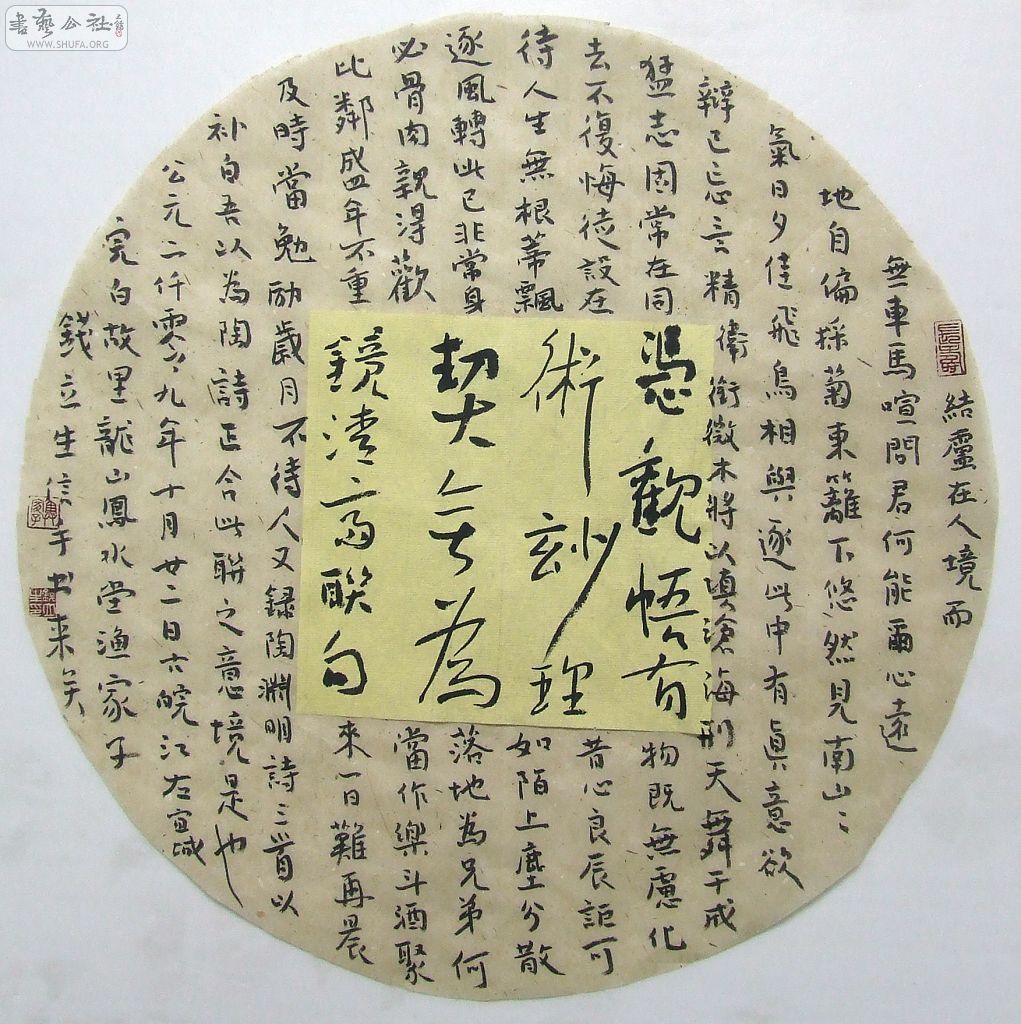 書藝公社
WWW.SHUFA.ORG
結廬在人境而
無車馬喧問君何能爾心遠
地自偏採菊東籬下悠然見南山〻
氣日夕佳飛鳥相與逐此中有真意欲
辯已忘言精衛銜微木將以填滄海刑天舞干戚
猛志固常在同物既無慮化
去不復悔徒設在昔心良辰詎可
待人生無根蒂飄如陌上塵分散
逐風轉此已非常身落地為兄弟何
必骨肉親得歡當作樂斗酒聚
比鄰盛年不重來一日難再晨
及時當勉勵歲月不待人又録陶淵明詩三首以
补白吾以為陶詩正合此聯之意境是也
公元二仟零九年十月廿二日古皖江左宣城
完白故里龍山鳳水堂漁家子
錢立生信手书来矣
憑觀悟有
術玅理
契无為
鏡清齋聯句